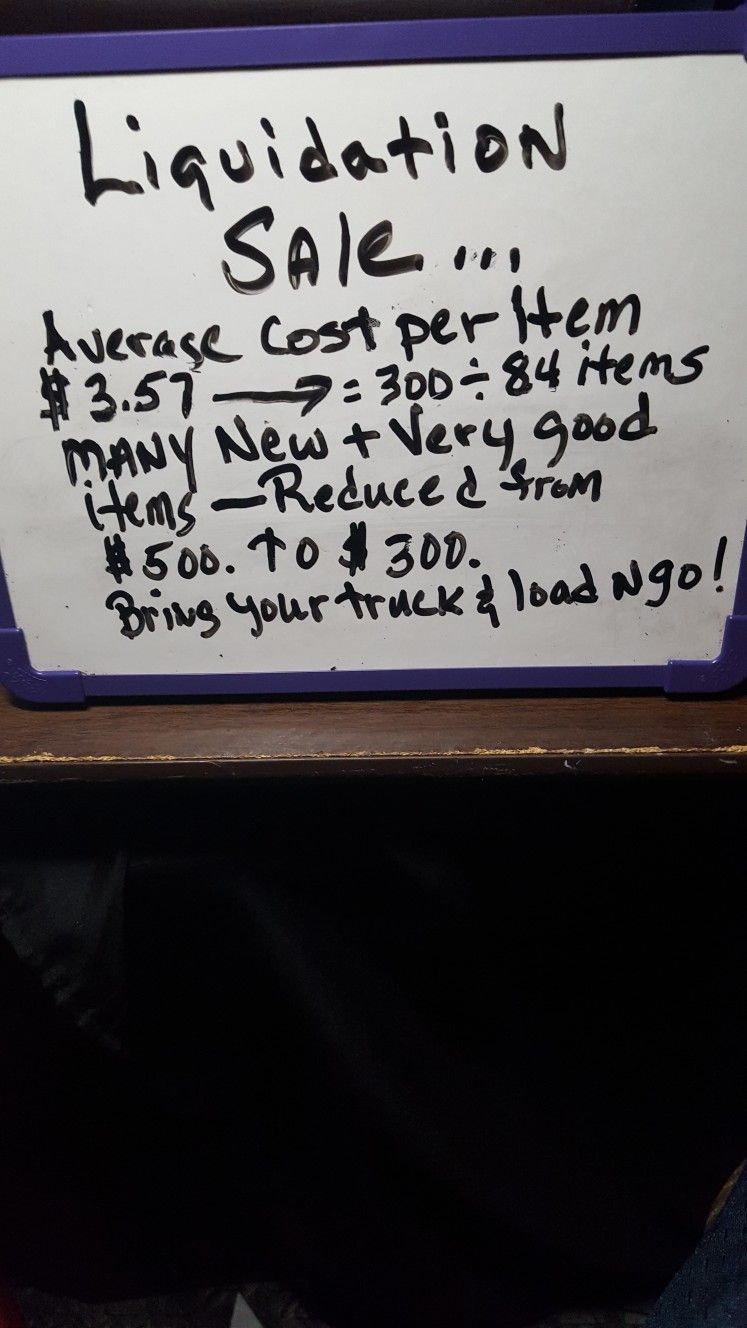 Liquidation
SAle...
Average Cost per Item
$ 3.57 → = 300 ÷ 84 items
MANY New + Very good
items - Reduced from
$500. TO $300.
Bring your truck & load N go!